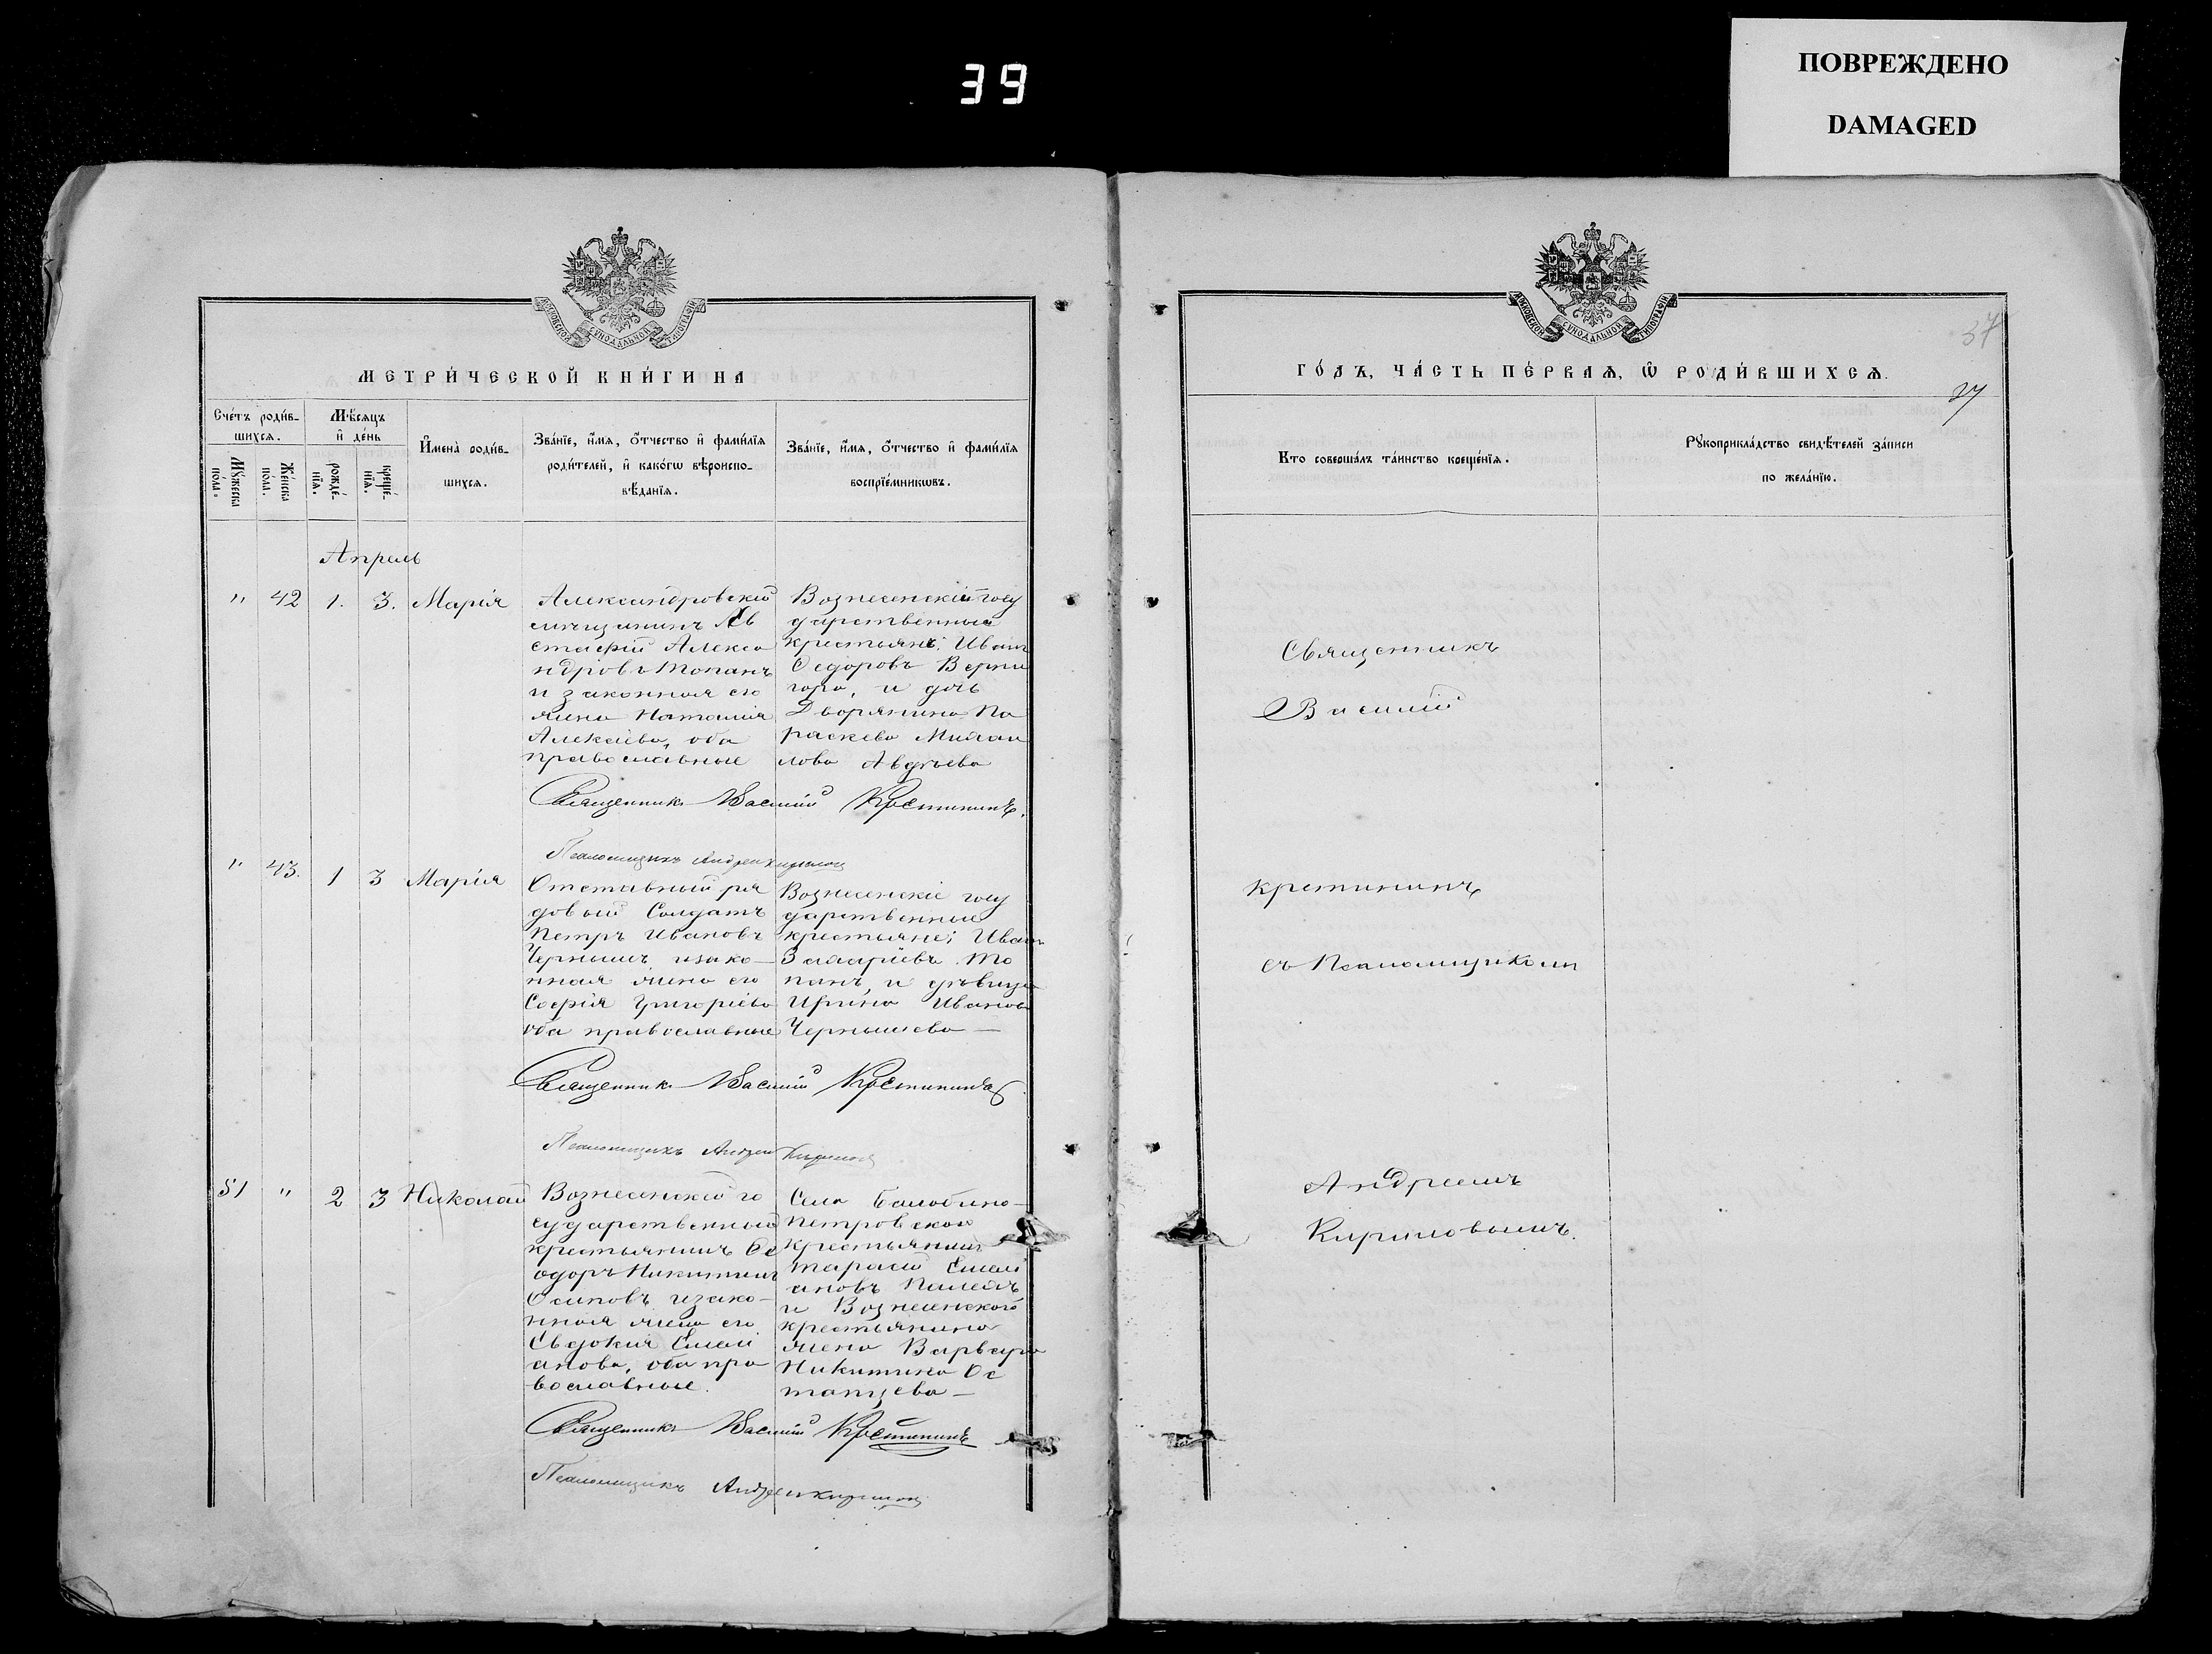 39
ПОВРЕЖДЕНО
DAMAGED
МОСКОВСКОЙ СѴНОДАЛЬНОЙ ТИПОГРАФІИ
МЕТРИ́ЧЕСКОЙ КНИ́ГИ НА
Сче́тъ роди́в-
шихсѧ.
Мꙋ́жеска
по́ла.
Же́нска
по́ла.
Мѣ́сѧцъ
и҆ де́нь
рожде́-
нїѧ.
креще́-
нїѧ.
И҆мена̀ роди́в-
шихсѧ.
Зва́нїе, и҆́мѧ, ѻ҆́тчество и҆ фами́лїѧ
роди́телей, и҆ како́гѡ вѣроиспо-
вѣ́данїѧ.
Зва́нїе, и҆́мѧ, ѻ҆́тчество и҆ фами́лїѧ
воспрїе́мникѡвъ.
Апрель
" 42 1. 3. Марія
Александровскій
мѣщанинъ Ав
стафій Алекса
ндровъ Топанъ
и законная его
жена Наталия
Алексіева, оба
православные
Вознесенскій госу
дарственный
крестьянъ: Иванъ
Ѳедоровъ Верни
гора, и дочь
Дворянина Па
раскева Михаи
лова Авдѣева
Священникъ Василій Крестининъ.
Псаломщикъ Андрей Кириловъ
" 43. 1 3 Марія
Отставный ря
довой Солдатъ
Петръ Ивановъ
Чернышъ изако-
нная жена его
Софія Григоріева
оба православные
Вознесенскіе госу
дарственные
крестьяне: Иванъ
Захаріевъ То
панъ, и дѣвица
Ирина Иванова
Чернышева —
Священникъ Василій Крестининъ
Псаломщикъ Андрей Кириловъ
51 " 2 3 Николай
Вознесенскій го
сударственный
крестьянинъ Ѳе
одоръ Никитинъ
Осиповъ изако-
нная жена его
Евдокия Емели
анова, оба пра
вославные.
Села
Петровской
крестьянинъ
Тарасій Емели
ановъ Палей
и Вознесенскаго
крестьянина
жена Варвара
Никитина Ос
тапцева —
Священникъ Василій Крестининъ
Псаломщикъ Андрей Кириловъ
МОСКОВСКОЙ СѴНОДАЛЬНОЙ ТИПОГРАФІИ
37
ГО́ДЪ, ЧА́СТЬ ПЕ́РВАѦ, Ѡ҆ РОДИ́ВШИХСѦ.
Кто соверша́лъ та́инство креще́нїѧ.
Рꙋкоприкла́дство свидѣ́телей за́писи
по жела́нїю.
Священникъ
Василій
Крестининъ
съ Псаломщикомъ
Андреемъ
Кириловымъ.